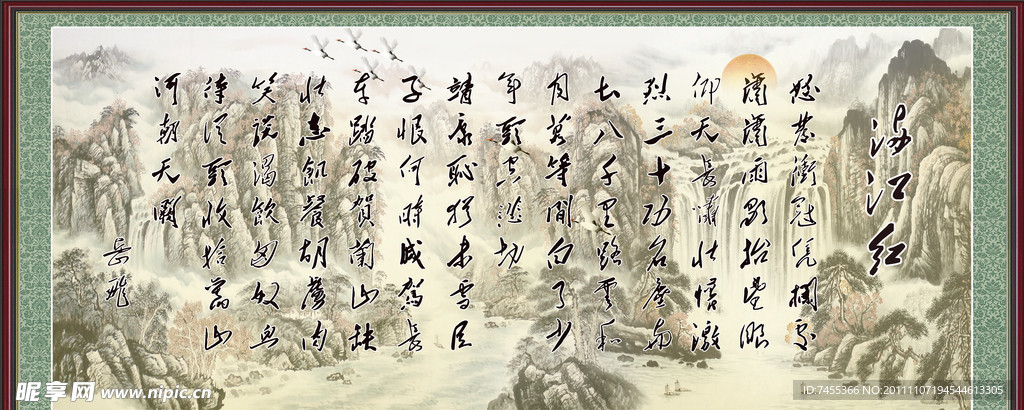 满江红
怒发衝冠凭欄处
潇潇雨歇抬望眼
仰天長嘯壮懷激
烈三十功名塵与
土八千里路雲和
月莫等閒白了少
年頭空悲切
靖康恥猶未雪臣
子恨何時滅驾長
车踏破賀蘭山缺
壮志飢餐胡虜肉
笑談渴飲匈奴血
待從頭收拾舊山
河朝天闕
岳飛
昵享网 www.nipic.cn
ID:7455366 NO:20111107194544613305